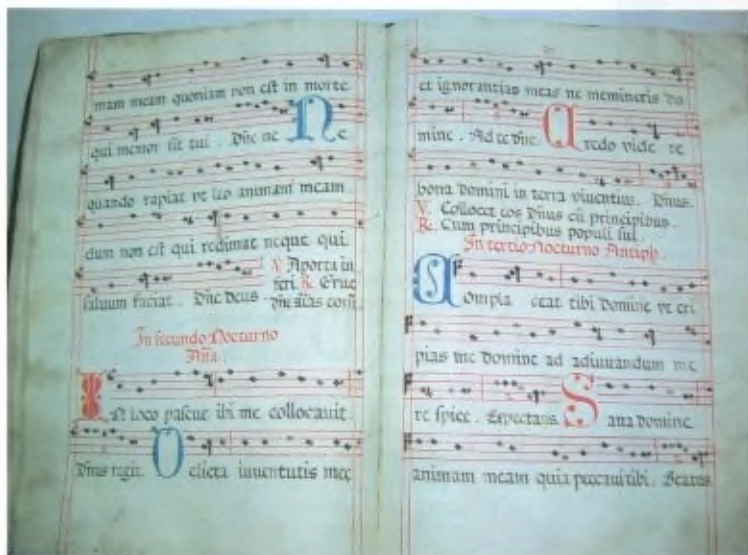 mam meam quoniam non est in morte
qui memor sit tui. Dñe ne Ne
quando rapiat vt leo animam meam
dum non est qui redimat neque qui
saluum faciat. Dñe deus
V. A porta in
feri. R. Erue
dñe
In secundo Nocturno
Aña.
IN loco pascue ibi me collocauit.
Dñus regit. Delicta iuuentutis mee
et ignorantias meas ne memineris do
mine. Ad te dñe. Credo vide re
bona domini in terra viuentium. Dñus.
V. Collocet eos Dñus cũ principibus.
R. Cum principibus populi sui.
In tertio Nocturno Antiph.
Compla ceat tibi domine vt eri
pias me domine ad adiuuandum me
re spice. Expectans. Sana domine
animam meam quia peccaui tibi. Beatus